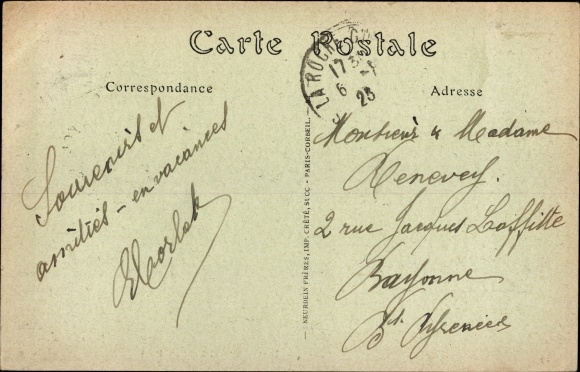 Carte Postale
Correspondance
Adresse
LA ROCHE
17
6
25
Souvenirs et
amitiés - en vacances
Monsieur & Madame
Renevey.
2 rue Jacques Laffitte
Bayonne
Bses Pyrenées
— NEURDEIN FRÈRES, IMP. CRÉTÉ, SUCC. - PARIS-CORBEIL. —